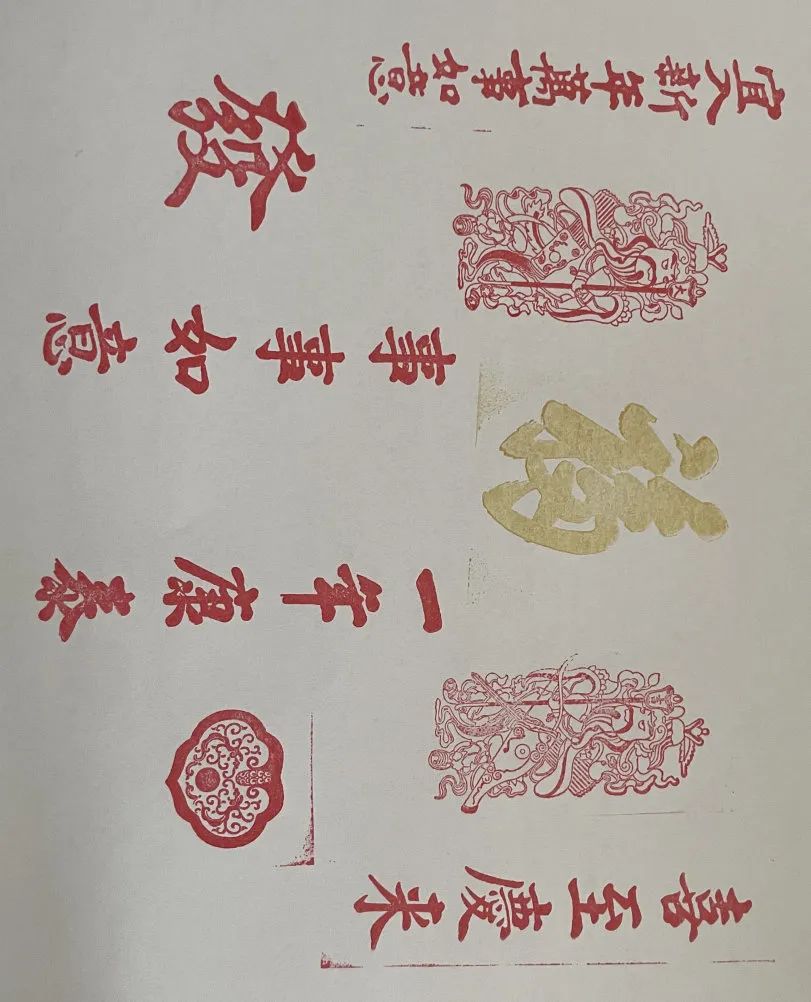 喜至慶來
一年康泰
福
事事如意
發
宜入新年萬事如意